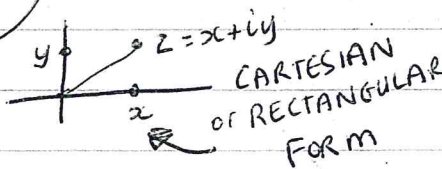 y z = x + iy
x
CARTESIAN
or RECTANGULAR
FORM